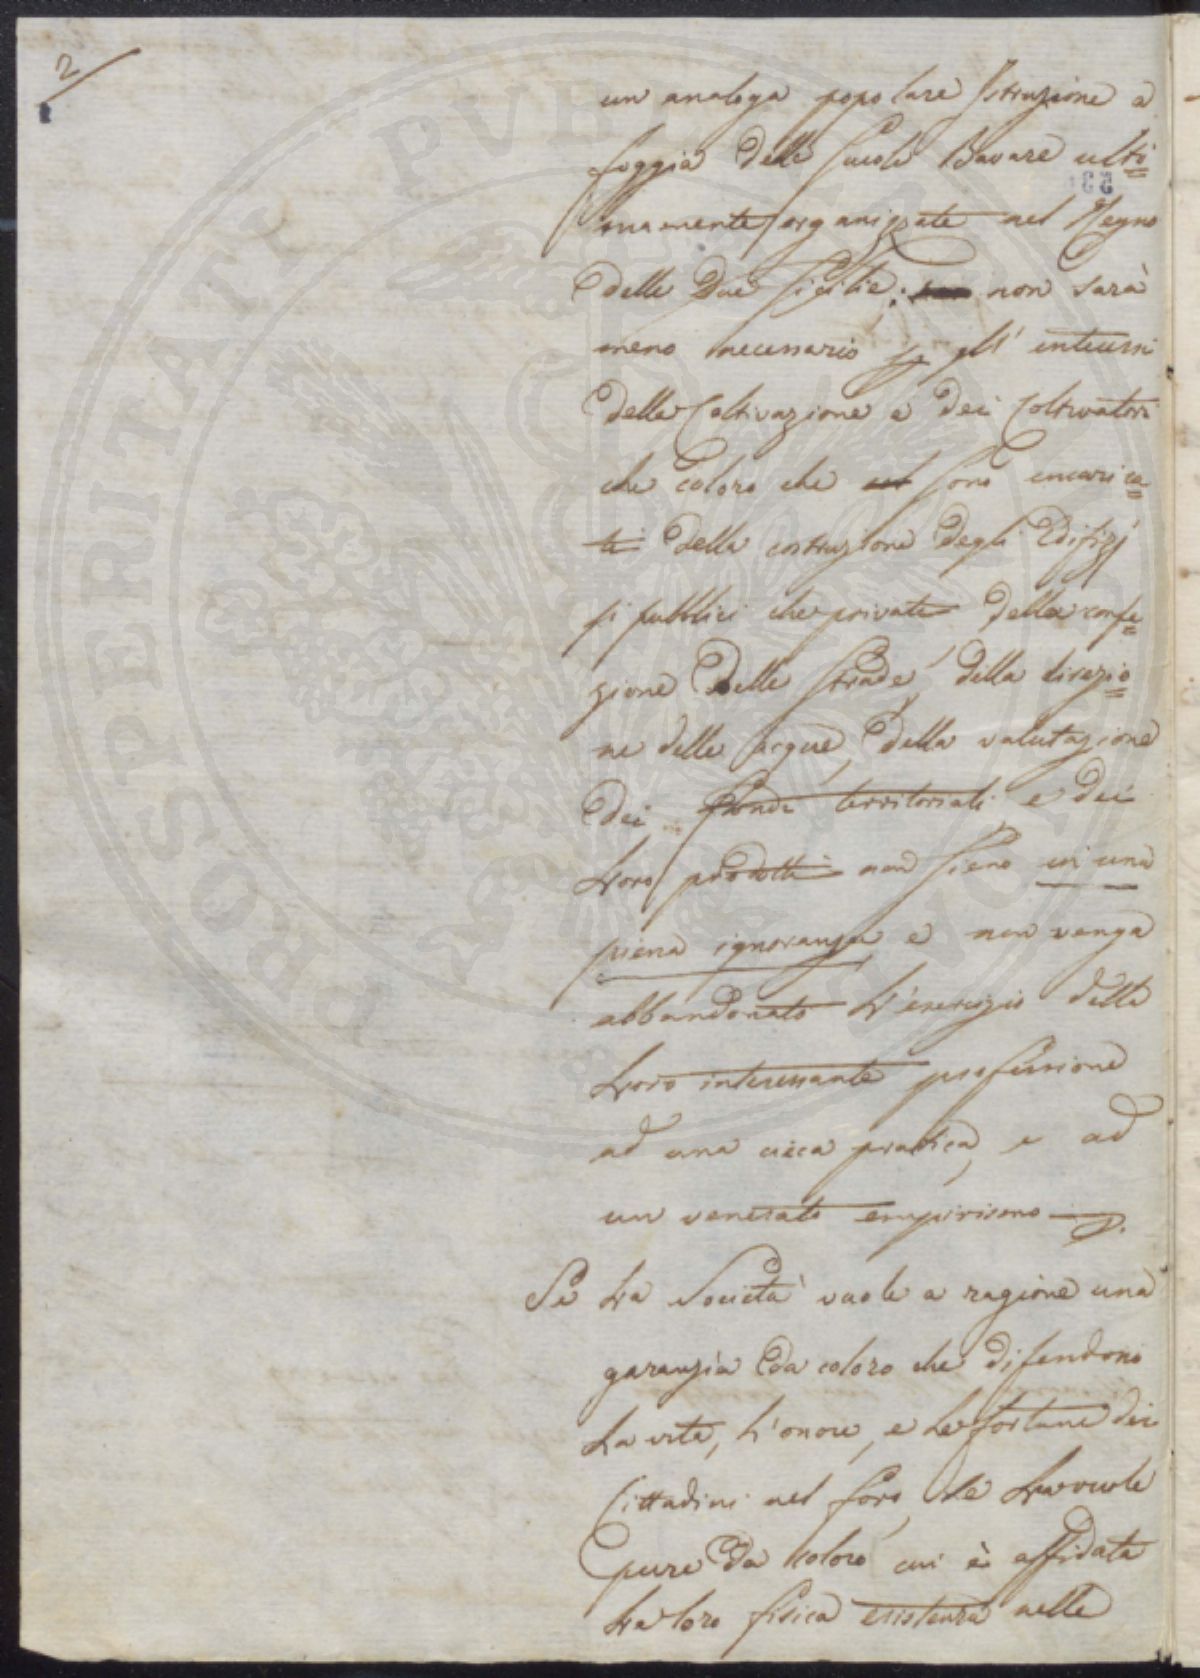 2
un analoga popolare Istruzione a
foggia delle Scuole Bavare ulti=
mamente organizzate nel Regno
delle Due Sicilie; non sarà
meno necessario per gl' interessi
della Coltivazione e dei Coltivatori
che coloro che sono incarica=
ti della costruzione degli Edifizj
si pubblici che privati della confe=
zione delle strade, della direzio=
ne delle acque, della valutazione
dei fondi territoriali e dei
loro prodotti non sieno in una
piena ignoranza e non venga
abbandonato l'esercizio della
loro interessante professione
ad una cieca pratica, e ad
un venerato empirismo.
Se la Società vuole a ragione una
garanzia da coloro che difendono
la vita, l'onore, e le fortune dei
Cittadini nel foro, se la vuole
pure da coloro cui è affidata
la loro fisica esistenza nelle
PROSPERITATI PVBLICAE